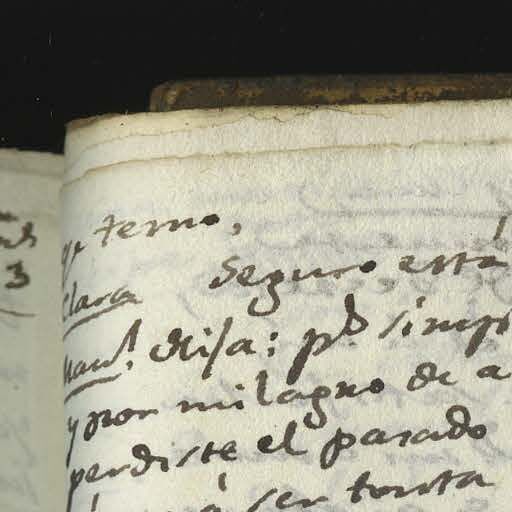 temo,
Clara Seguro está
Man.l Elisa: p.o simp
y por milagro de a
perdiste el pasado
á ser tonta
3